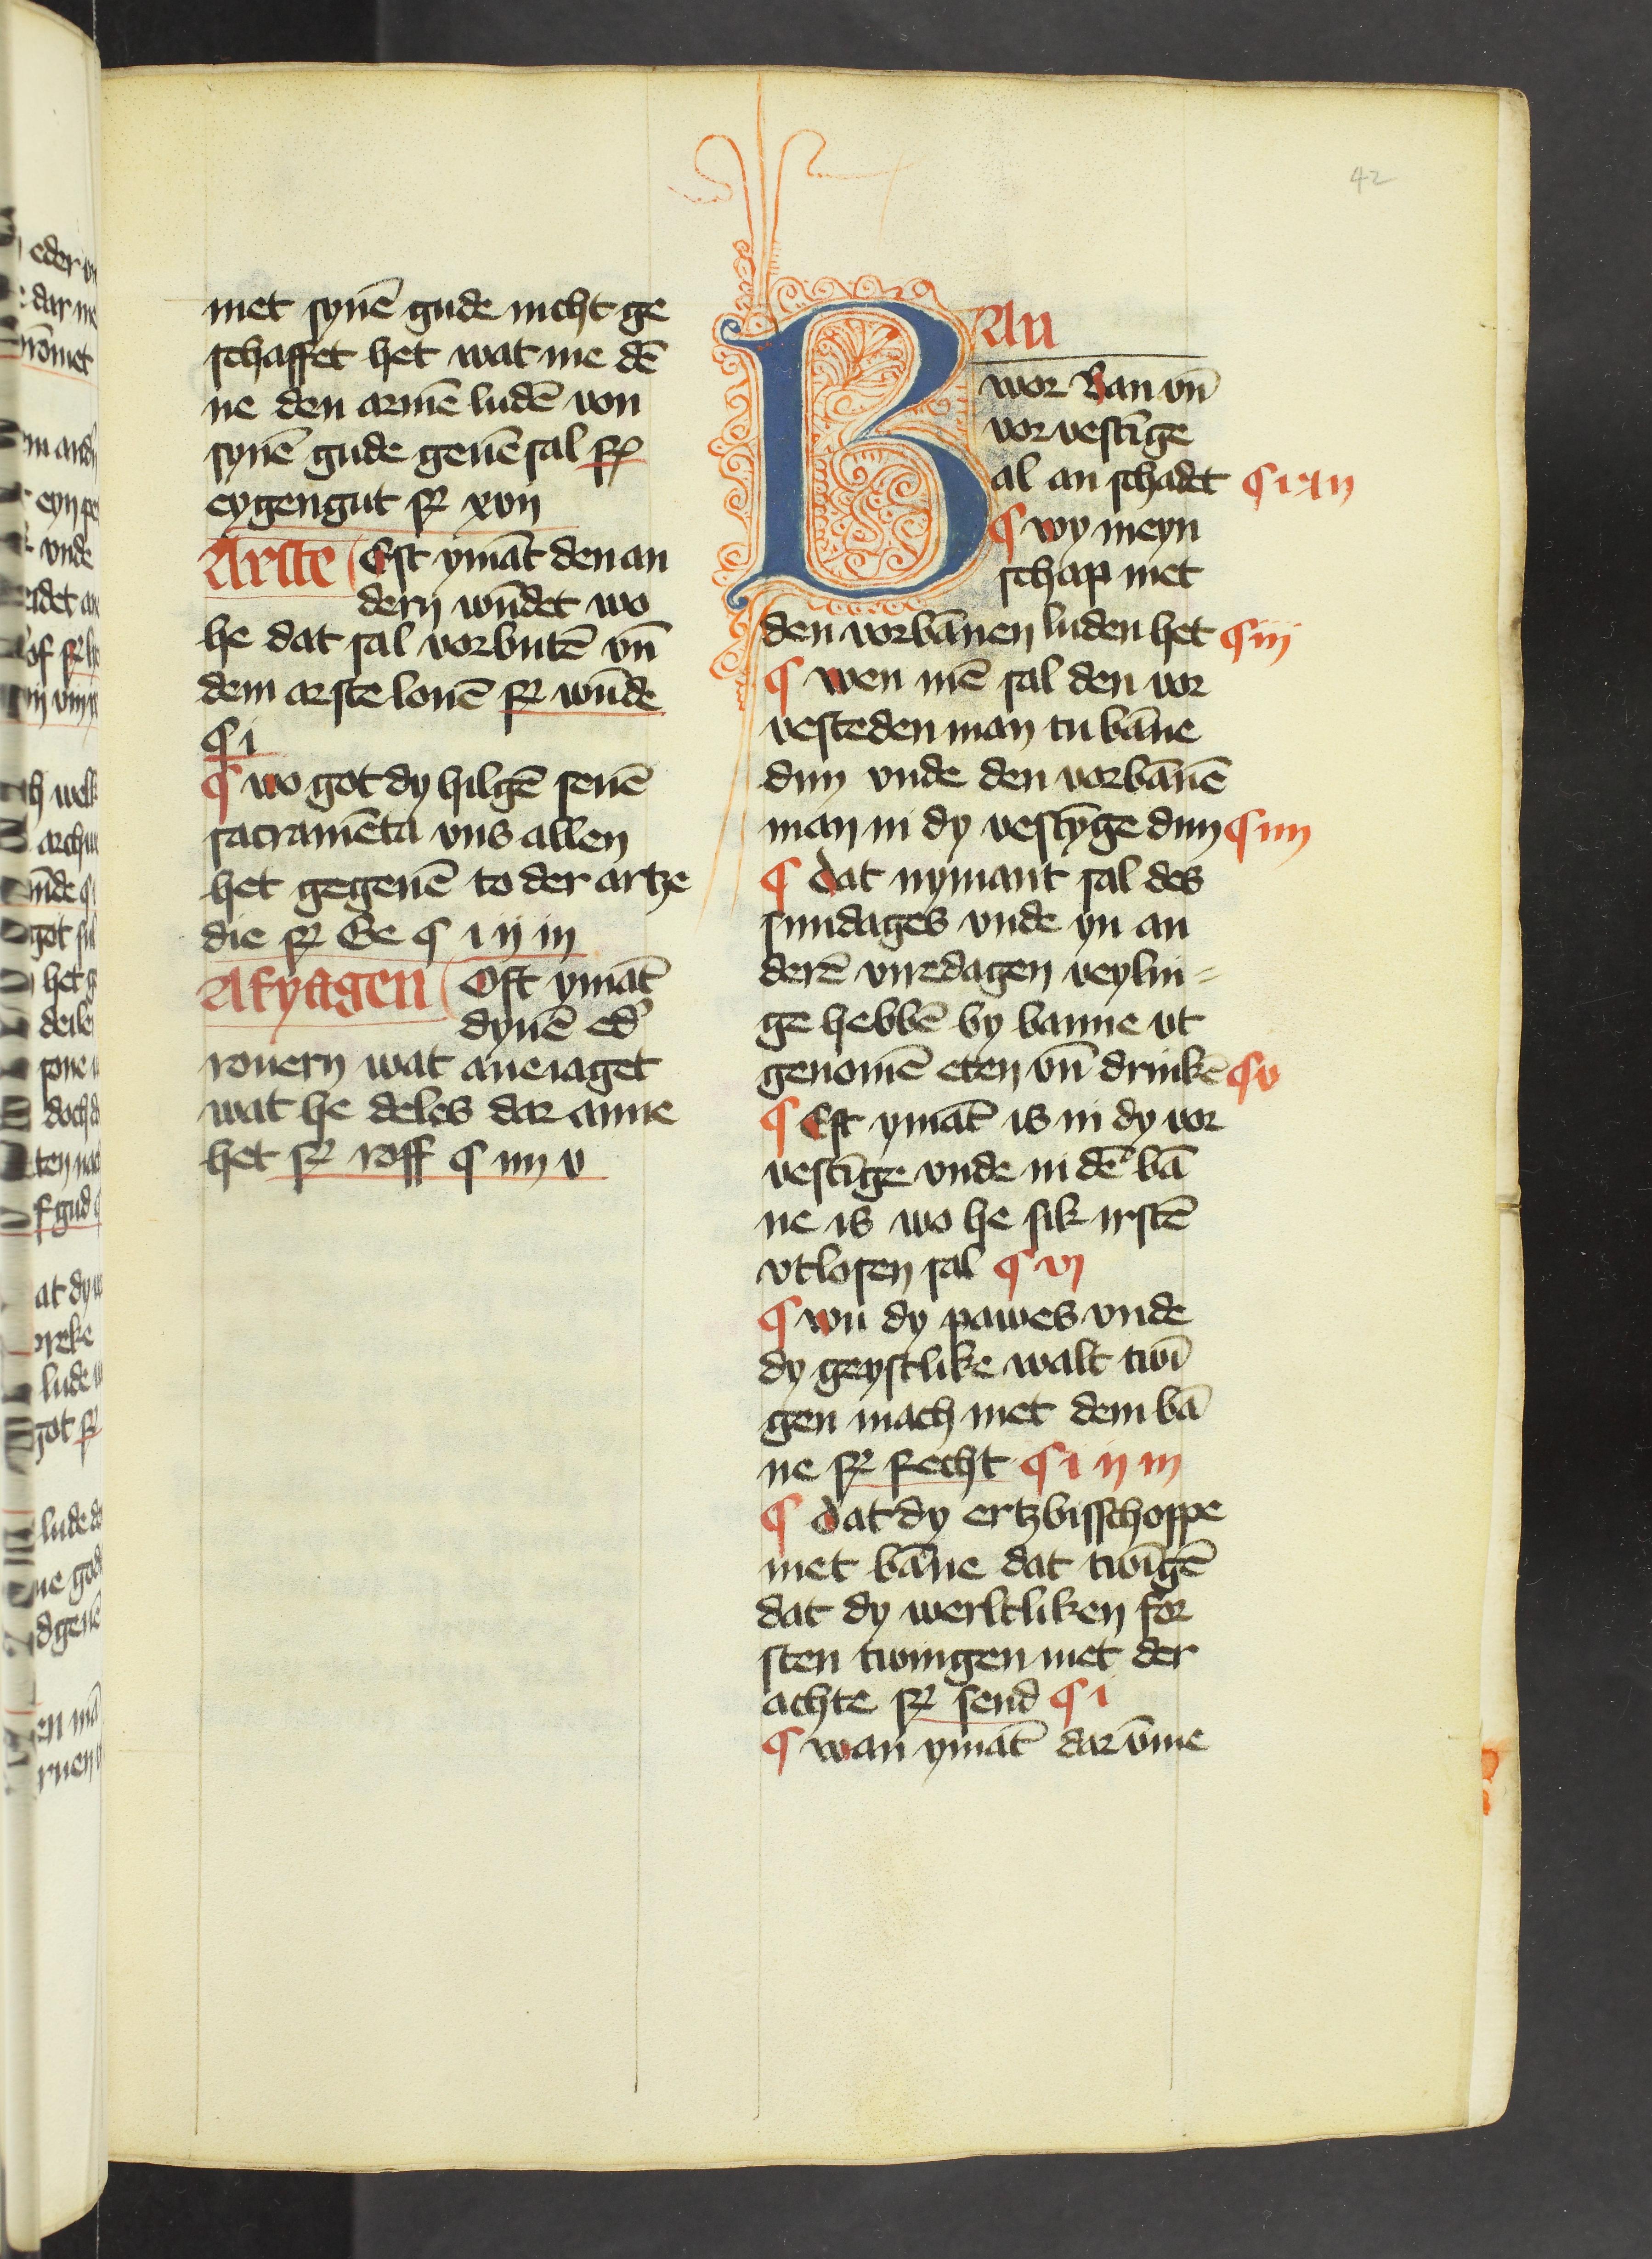 42
met synē gude nicht ge
schaffet het wat me dē
ne den armē ludē von
synē gude geuē sal
eygengut xvii
Arste Eft ymāt den an
dern wūdet wo
he dat sal vorbutē vn̄
dem arste lonē wūde
¶ i
¶ wo got dy hilgē seuē
sacramēta vns allen
het gegeuē to der artze
die Ee ¶ i ii iii
Afyagen Oft ymāt
dyuē ed'
rouern wat aueiaget
wat he deles dar anne
het roff ¶ iiii v
BAn
wor Ban vn̄
vorvestīge
al an schadet ¶ i
¶ wy meyn
schap met
den vorbānen luden het ¶ iii
¶ wen mē sal den vor
vesteden man tu bāne
dun vnde den vorbānē
man in dy vestȳge dun ¶ iiii
¶ dat nymant sal des
sundages vnde yn an
derē viredagen veylin=
ge hebbē by banne vt
genomē eten vn̄ drinkē ¶ v
¶ Eft ymāt is in dy vor
vestīge vnde in dē bā
ne is wo he sik irstē
vtlosen sal ¶ vi
¶ wu dy pawes vnde
dy geystlike walt twī
gen mach met dem bā
ne recht ¶ i ii iii
¶ dat dy ertzbisschoppe
met bāne dat twīgē
dat dy werltliken for
sten twingen met der
achte send ¶ i
¶ wan ymāt dar v̄me